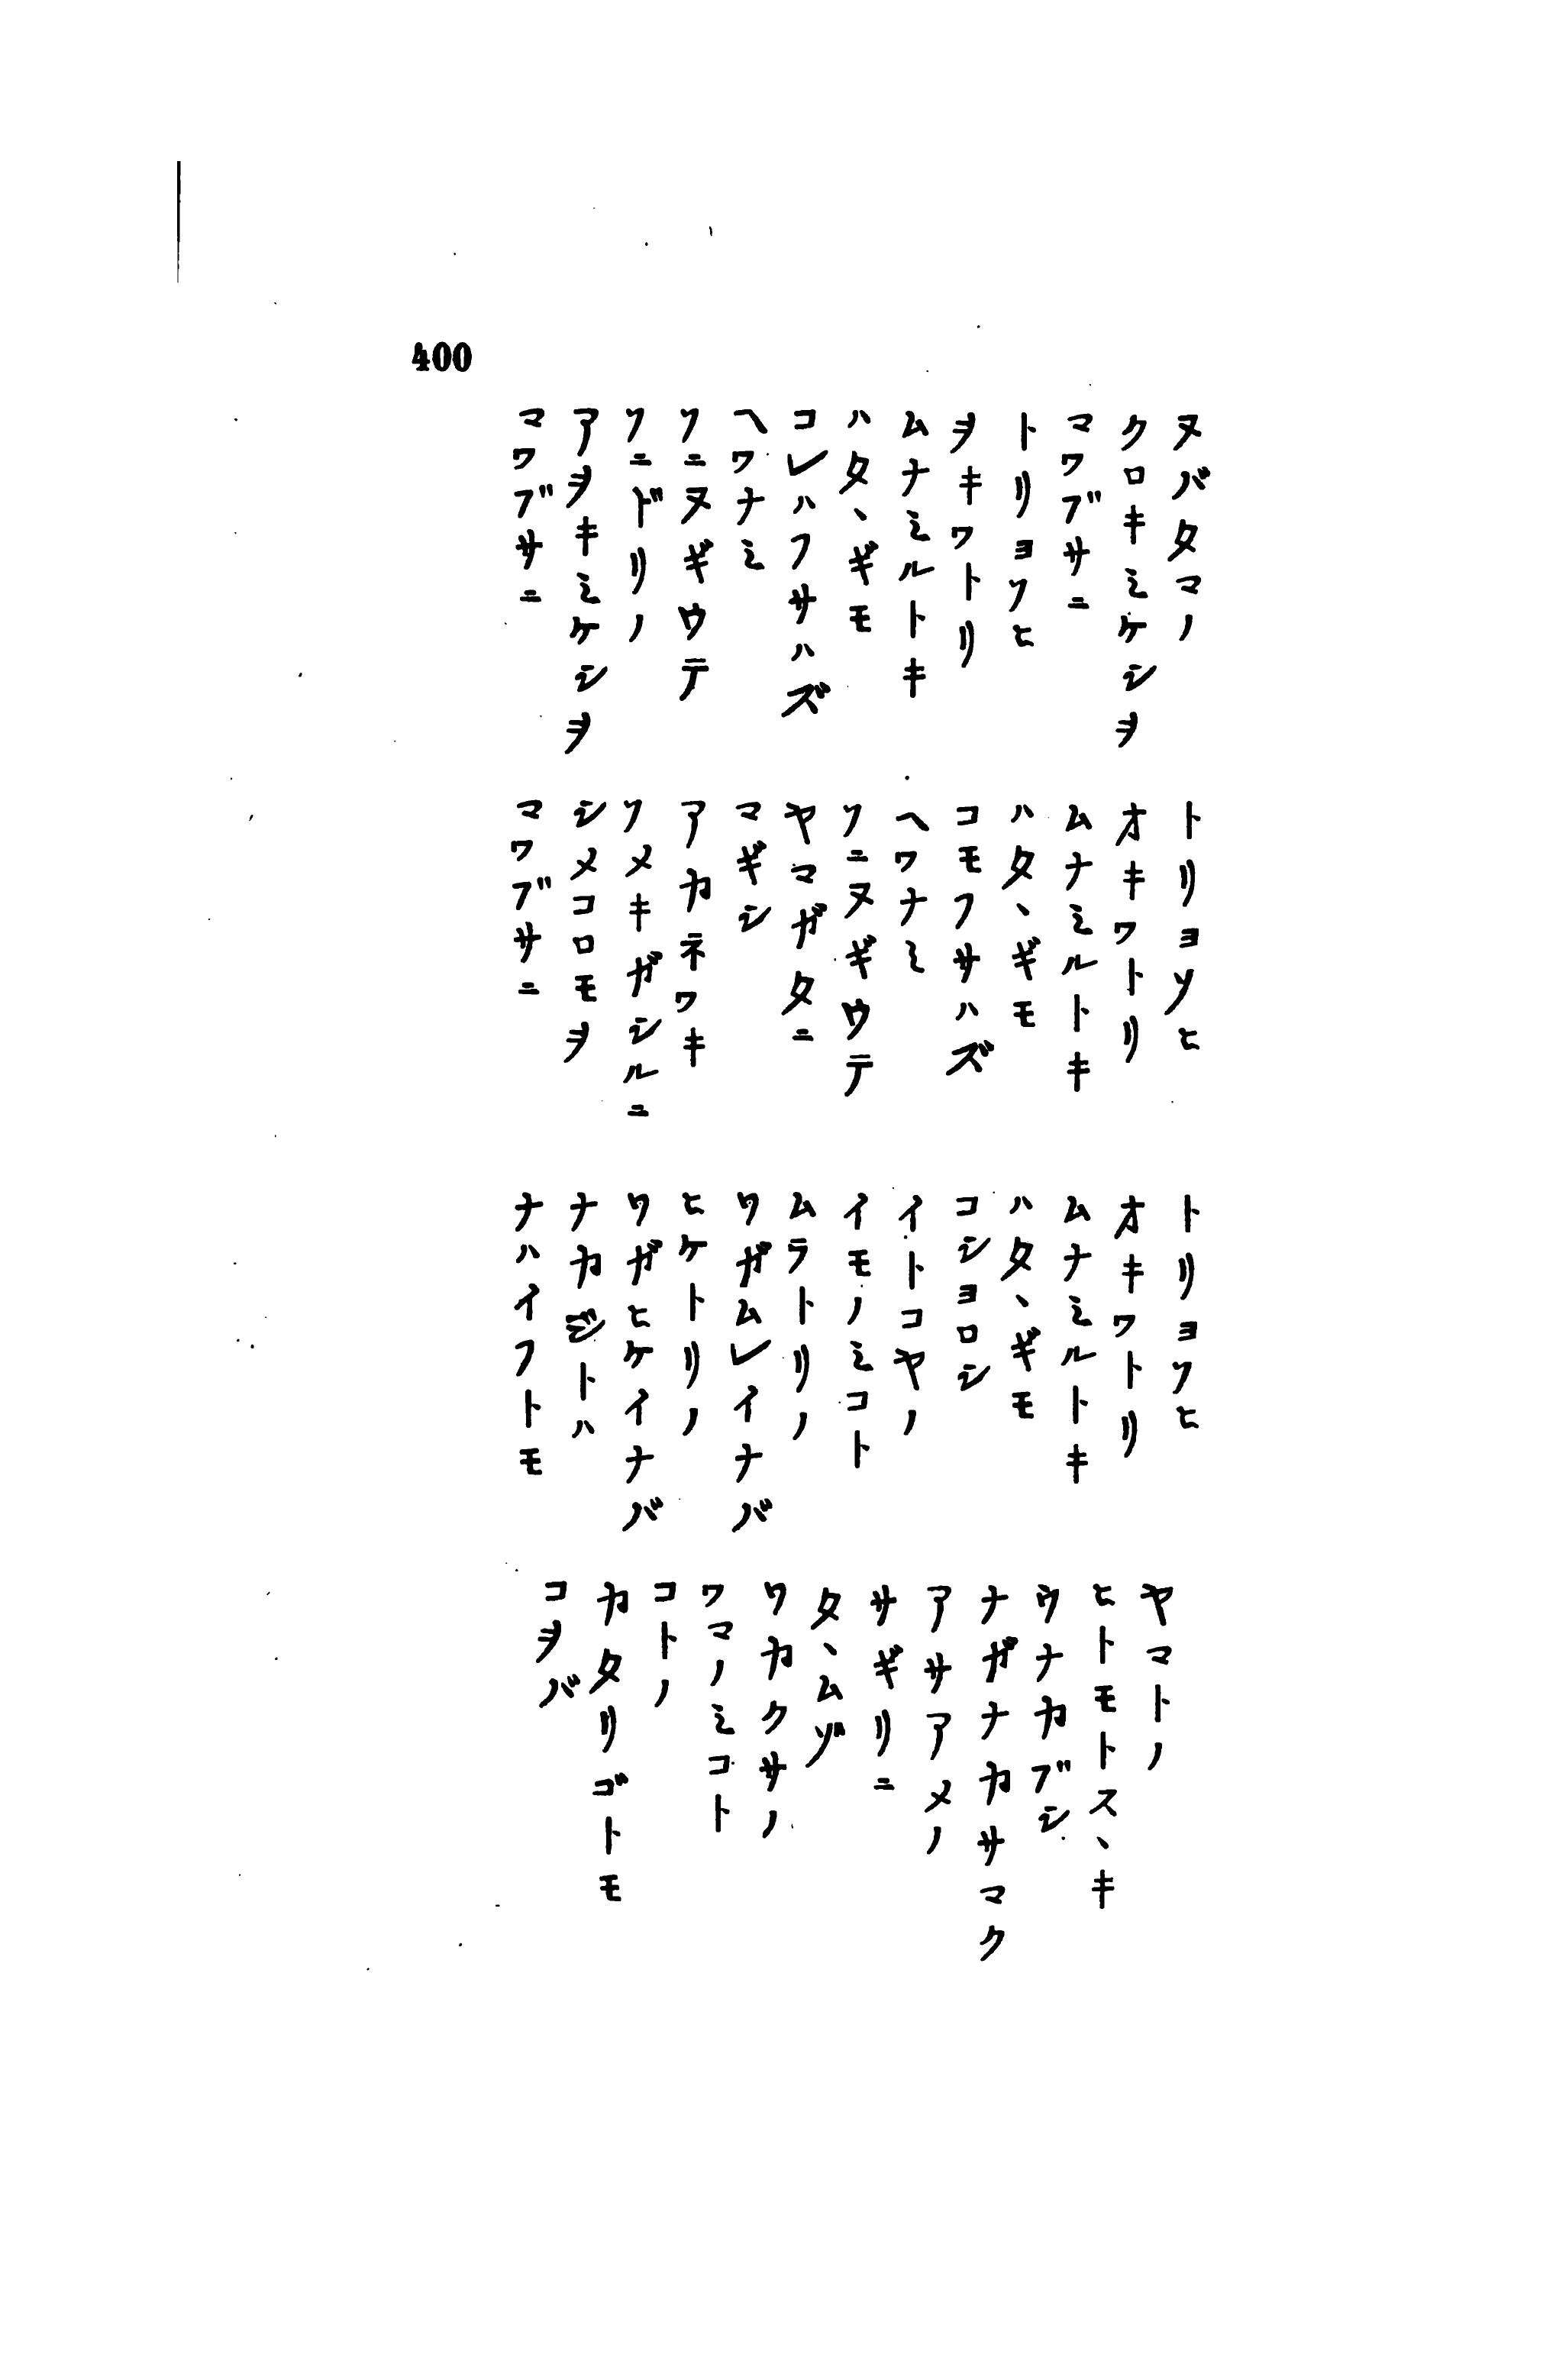 400
ヌバタマノ
クロキミケシヲ
マツブサニ
トリヨソヒ
ヲキツトリ
ムナミルトキ
ハタヽギモ
コレハフサハズ
ヘツナミ
ソニヌギウテ
ソニドリノ
アヲキミケシヲ
マツブサニ
トリヨソヒ
オキツトリ
ムナミルトキ
ハタヽギモ
コモフサハズ
ヘツナミ
ソニヌギウテ
ヤマガタニ
マギシ
アカネツキ
ソメキガシルニ
シメコロモヲ
マツブサニ
トリヨソヒ
オキツトリ
ムナミルトキ
ハタヽギモ
コシヨロシ
イトコヤノ
イモノミコト
ムラトリノ
ワガムレイナバ
ヒケトリノ
ワガヒケイナバ
ナカジトハ
ナハイフトモ
ヤマトノ
ヒトモトスヽキ
ウナカブシ
ナガナカサマク
アサアメノ
サギリニ
タヽムゾ
ワカクサノ
ツマノミコト
コトノ
カタリゴトモ
コヲバ